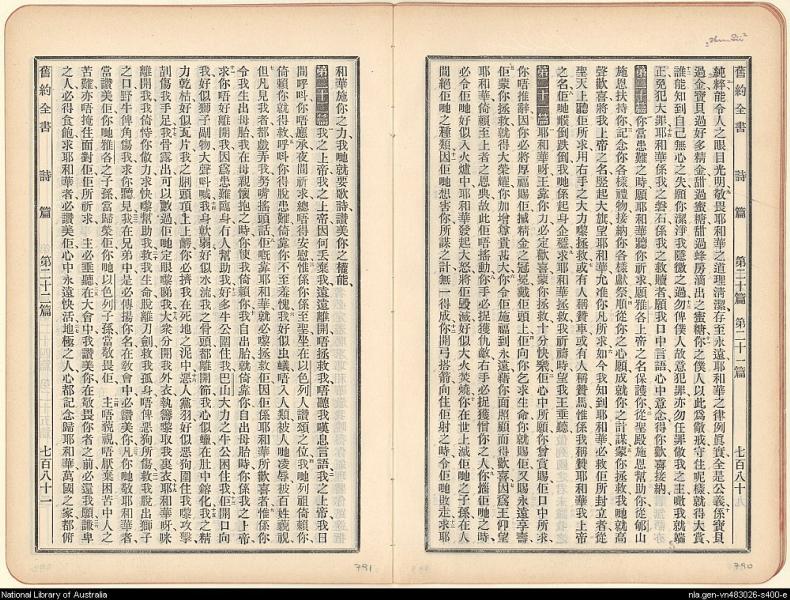 舊約全書 詩篇 第二十篇 第二十一篇 七百八十
純粹能令人之眼目光明敬畏耶和華之道理清潔存至永遠耶和華之律例眞實全是公義係寶貝
過金寶貝過好多精金甜過蜜糖甜過蜂房滴出之蜜糖你之僕人以此為儆戒守住呢樣就得大賞
誰能知到自己無心之失願你潔淨我隱微之過勿俾僕人故意犯罪亦勿任罪做我之主噉我就端
正免犯大罪耶和華係我之磐石係我之救贖者願我口中言語心中意念得你歡喜接納
第二十篇 你當患難之時願耶和華聽你祈求願雅各上帝之名保護你從聖殿施恩幫助你從郇山
施恩扶持你記念你各樣禮物接納你各樣獻祭順從你之心願成就你之計謀蒙你拯救我哋就高
聲歡喜將我上帝之名豎起大旗望耶和華允准你凡所求如今我知到耶和華必救佢所封立者從
聖天上聽佢所求用右手之大力嚟拯救或有人稱贊車或有人稱贊馬惟係我稱贊耶和華我上帝
之名佢哋喉倒跌倒我哋係起身企穩求耶和華拯救我祈禱時望我王垂聽
第二十一篇 耶和華呀王必定歡喜蒙你拯救十分快樂佢心中所願你曾賞賜佢佢口中所求
你唔推辭因你必將厚福賜佢搣精金之冠冕戴佢頭上佢向你乞求生命你就賜佢又賜永遠享壽
佢蒙你拯救就得大榮耀你加增尊貴甚大你令佢施福到永遠藉你面照顧而得歡喜因為王仰望
耶和華倚賴至上者之恩典故此佢唔搖動你手必捉獲仇敵右手必捉獲憎你之人你搖佢哋之時
必令佢哋好似入火爐中耶和華發起大怒將佢毀滅好似大火焚燒你在世上滅佢哋之子孫在人
間絕佢哋之種類因佢哋想害你所謀之計無一得成你開弓搭箭向住佢射之時令佢哋敗走求耶
790
和華施你之力我哋就要歌詩讚美你之權能
第二十二篇 我之上帝我之上帝因何丟棄我遠遠離開唔拯救我唔聽我嘆息言語我之上帝我日
間呼叫你唔應承夜間祈求總唔得安慰惟係你係至聖坐在以色列人讚頌之位我哋列祖倚賴你
倚賴你就得救呼叫你得脫患難倚靠你不至羞愧我好似虫蟻唔入人類被人哋凌辱被百姓藐視
但凡見我者都戲弄我努嘴搖頭話佢嘅靠耶和華就必嚟拯救佢因佢係耶和華所歡喜者惟係你
令我生出母胎我在母親懷抱之時你使我倚賴你我自出胎就倚靠你自出母胎時你係我之上帝
求你唔好離開我因為患難臨身有人幫助我好多牛公圍住我巴山大力之牛公困住我佢開口向
我好似獅子副物大聲叫喊我身軟弱好似水流我之骨頭都離開節我心似蠟在肚中鎔化我之精
力乾枯好似瓦片我之脷頭頂上上齶你必擠我在死地之泥中惡人黨羽好似惡狗圍住我嚟攻擊
剳傷我手足我骨露出可以數過佢哋定眼嚟睇我大衆分開我外衣執籌嚟取我裏衣耶和華呀咪
離開我我倚恃你儆力求快嚟幫助我救我生命脫離刀劍救我孤身唔俾惡狗所傷救我脫出獅子
之口野牛俾角傷我求你聽見我在兄弟中是必傳揚你名在敎會中必讚美你凡你哋敬耶和華者
當讚美佢你哋雅各之子孫當歸榮佢你哋以色列子孫當敬畏佢主唔藐視唔厭棄困苦中人之
苦難亦唔掩住面對佢佢所祈求主必垂聽在大會中我讚美你在敬畏你者之前必還我願謙卑
之人必得食飽求耶和華者必讚美佢心中永遠快活地極之人心都記念歸耶和華萬國之家都俯
舊約全書 詩篇 第二十二篇 七百八十一
791
National Library of Australia
nla.gen-vn483026-s400-e